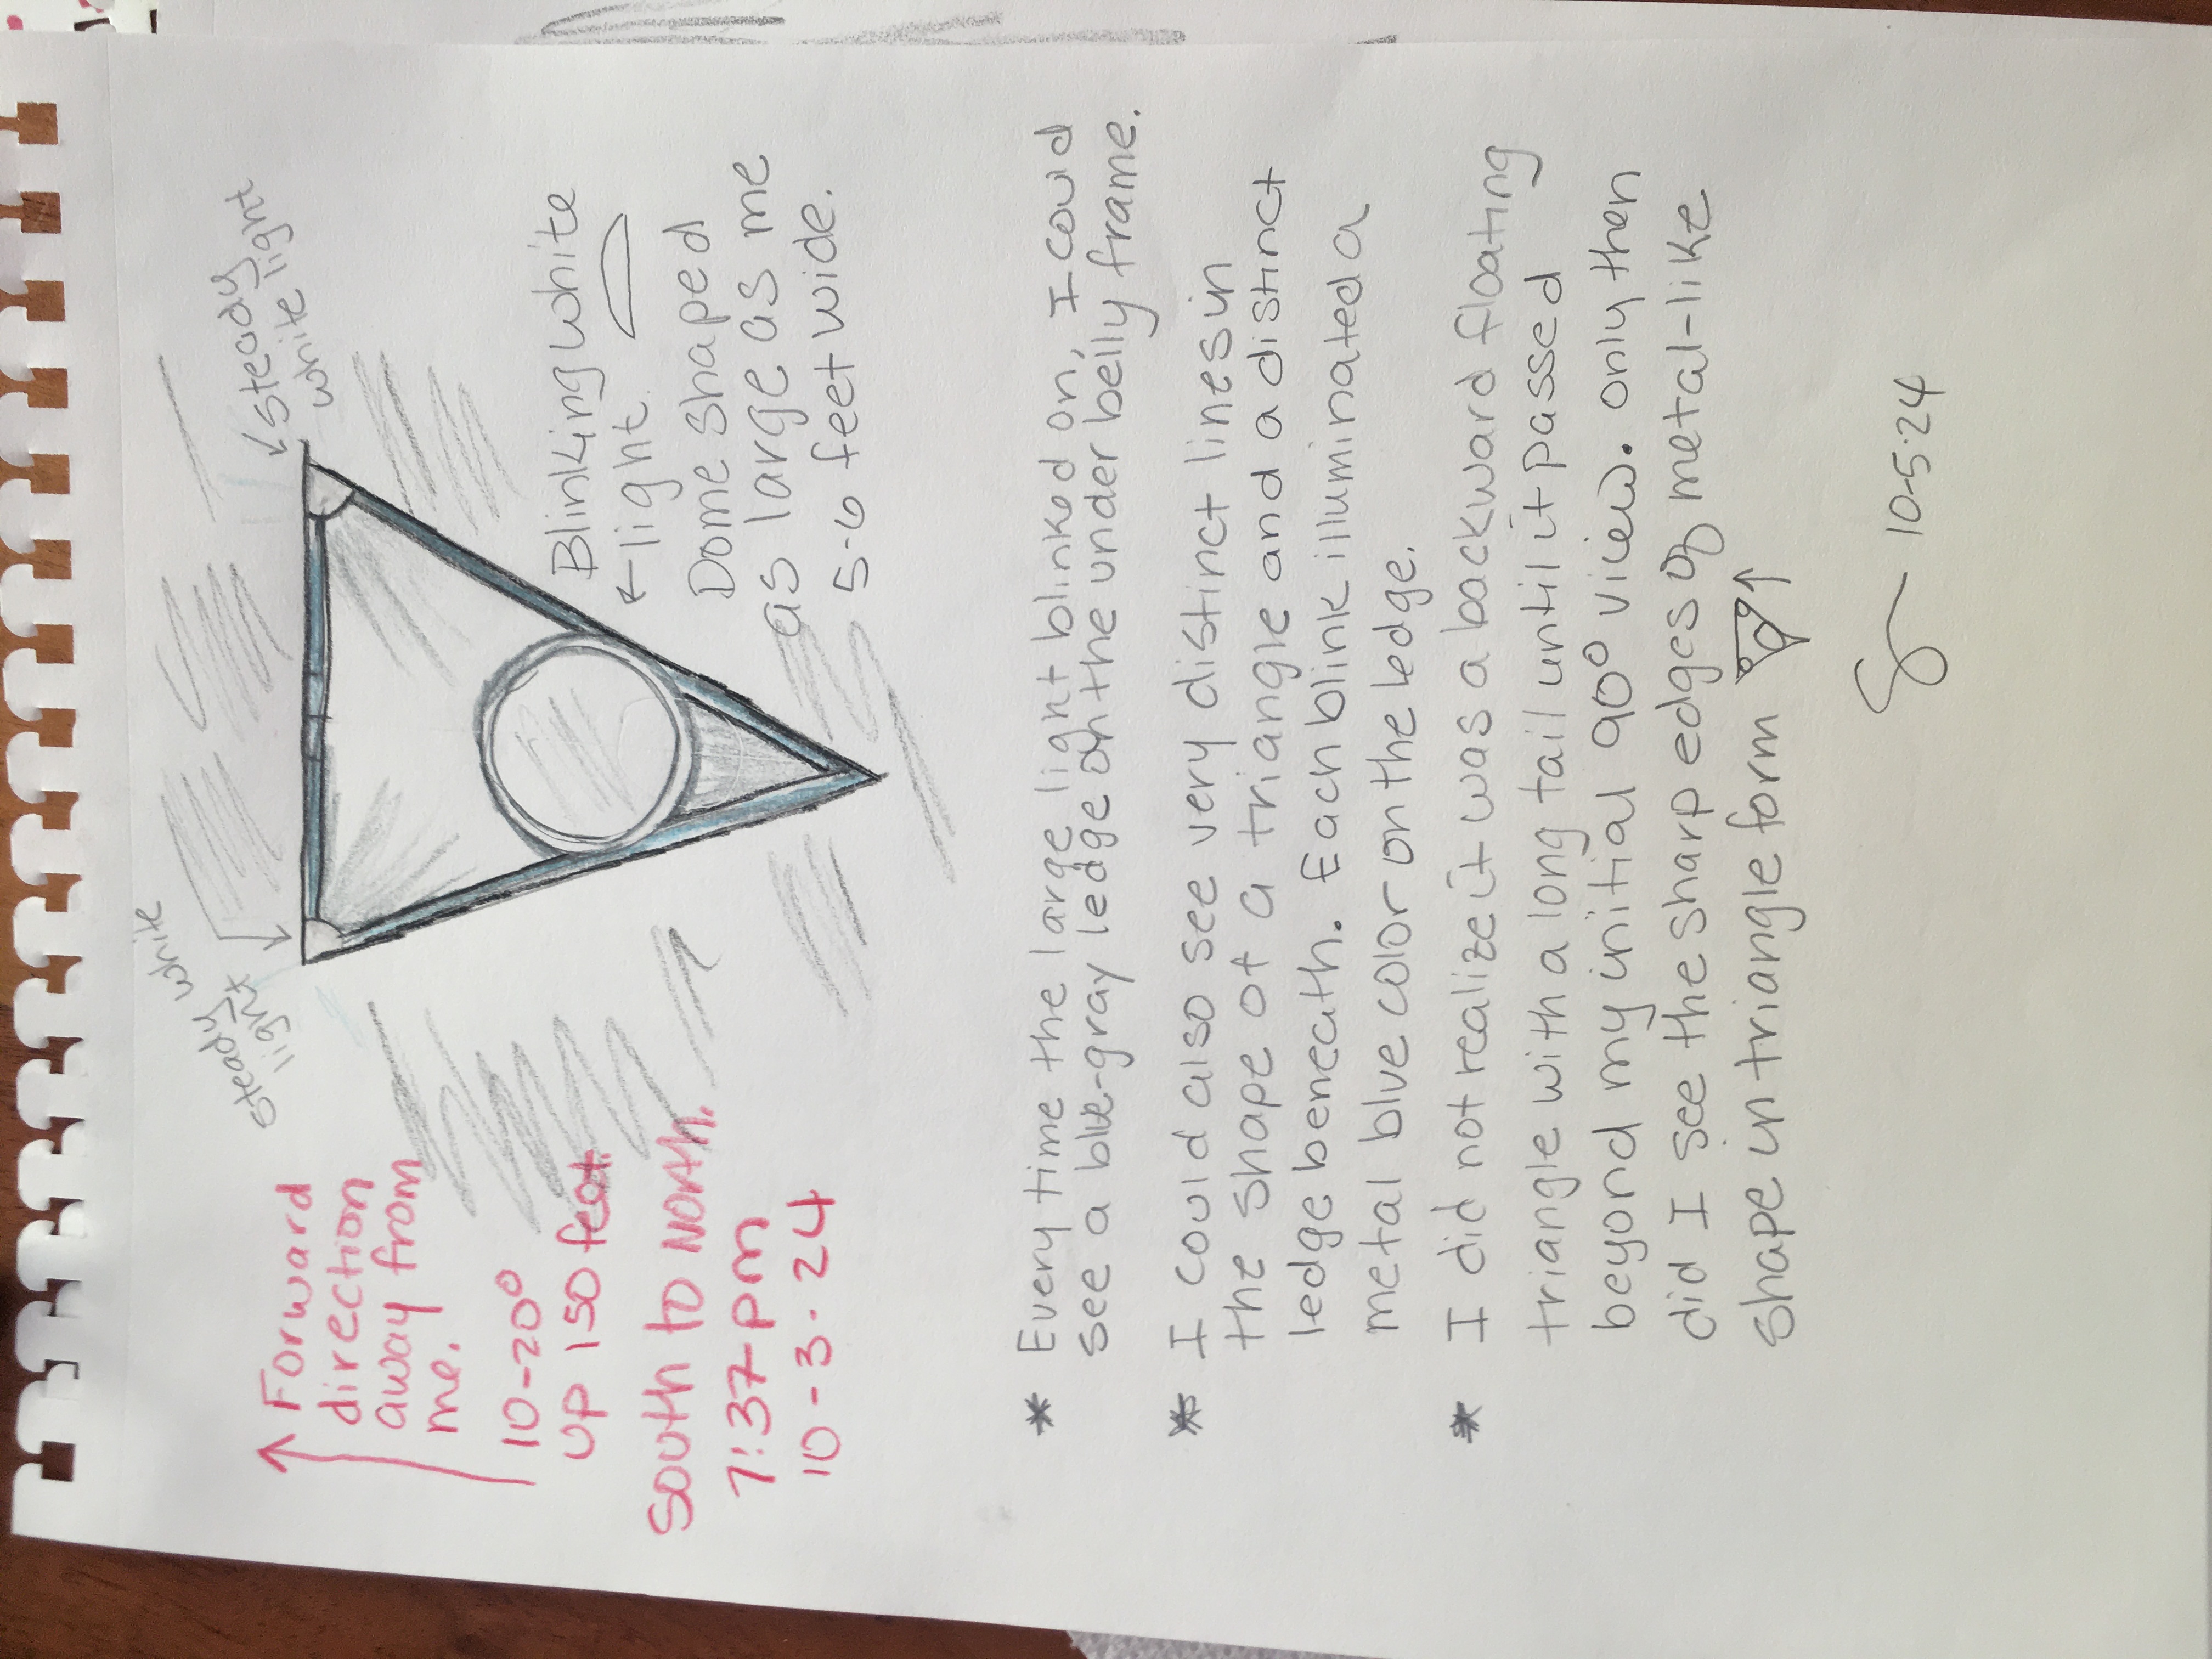 steady white
light
steady
white light
↑ Forward
direction
away from
me.
10-20°
up 150 feet.
South to North.
7:37 pm
10-3-24
Blinking white
←light
Dome shaped
as large as me
5-6 feet wide.
* Every time the large light blinked on, I could
see a blue-gray ledge on the under belly frame.
* I could also see very distinct lines in
the shape of a triangle and a distinct
ledge beneath. Each blink illuminated a
metal blue color on the ledge.
* I did not realize it was a backward floating
triangle with a long tail until it passed
beyond my initial 90° view. only then
did I see the sharp edges of metal-like
shape in triangle form
10-5-24